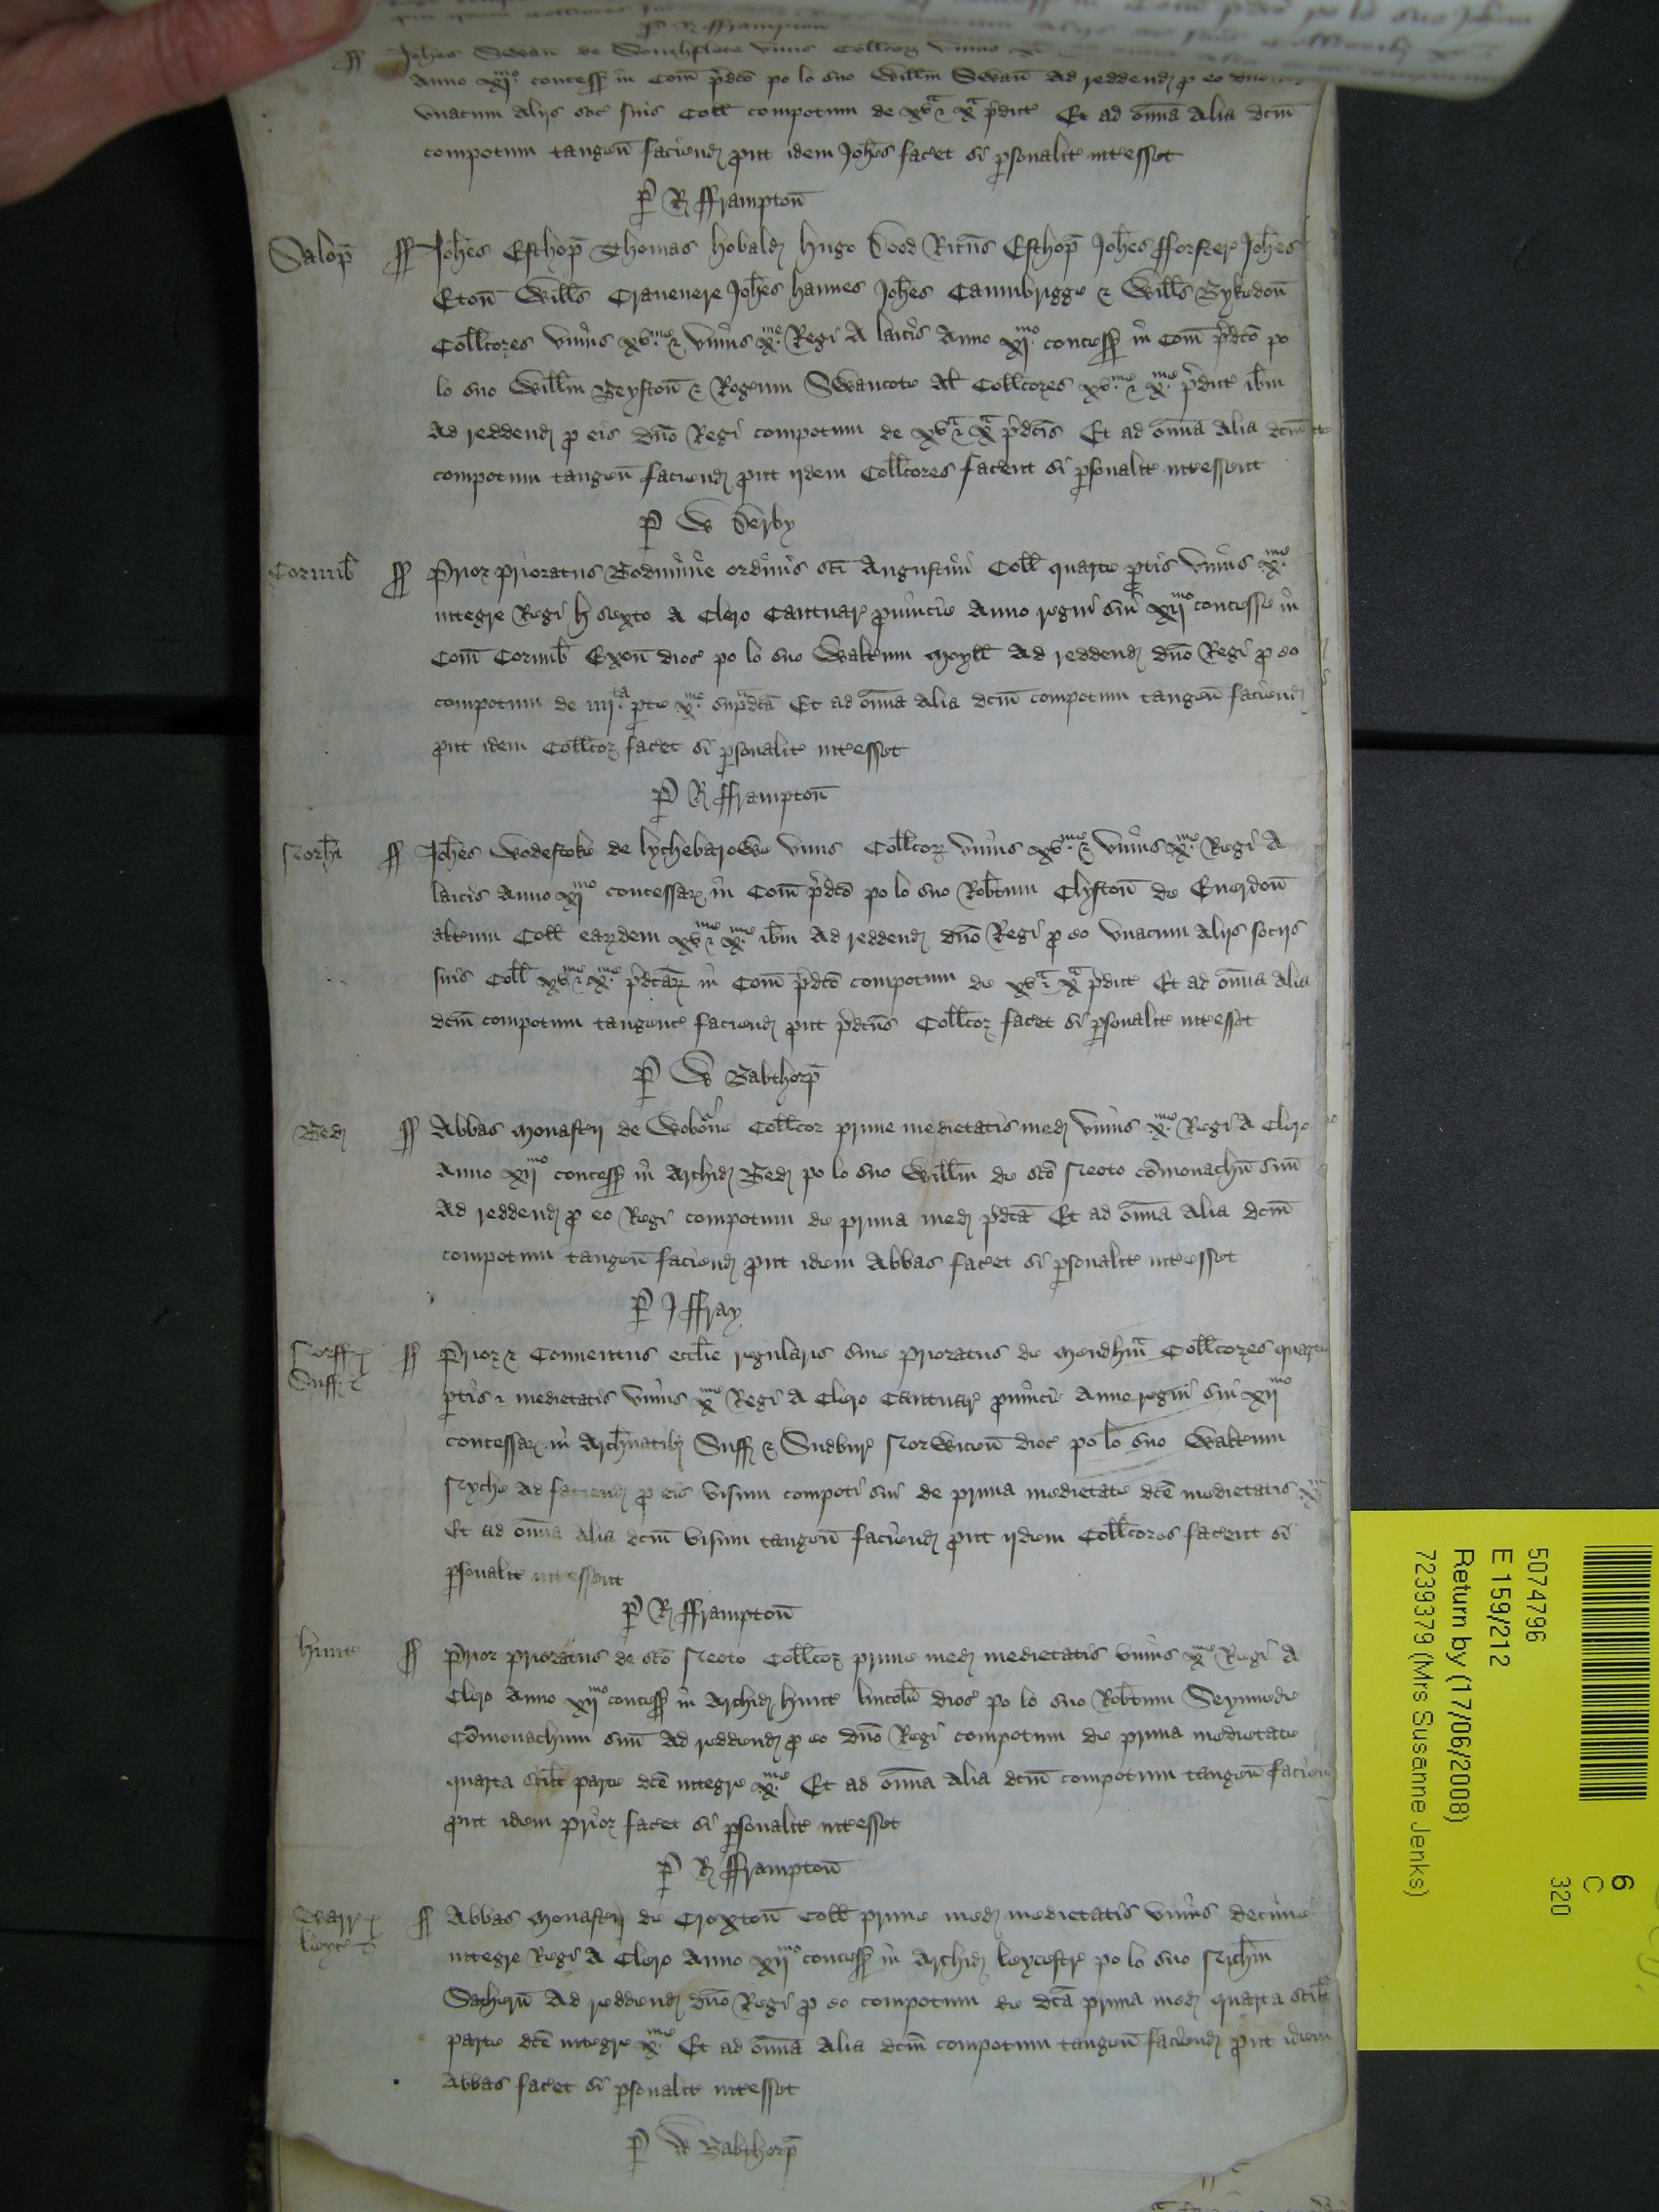 P R fframpton
ff Johes Swan de Southflete unus Collcorz unius
Anno xjmo concess in Com pdco po lo suo Willm Swan Ad reddend p eo
unacum aliis soc suis Coll compotum de xva & xa pdict Et ad omia alia dcm
compotum tangen faciend put idem Johes facet si psonalit intesset
P R fframpton
Salop ff Johes Esthop Thomas hobald hugo Dood Ricus Esthop Johes fforster Johes
Eton Wills Cravenere Johes hannes Johes Caumbrigge & Wills Bykedon
Collcores unius xvme & unius xme Regi A laicis Anno xjmo concess in Com pdco po
lo suo Willm Beyston & Rogerum Swancote Al Collcores xvme & xme pdict ibm
Ad reddend p eis dno Regi compotum de xva & xa pdcis Et ad omia Alia dcm
compotum tangen faciend put iidem Collcores facent si psonalit intessent
P W Derby
Cornub ff Prior prioratus Bodminie ordinis sci Augustini Coll quarte ptis unius xme
integre Regi h sexto A Clero Cantuar pvincie Anno regni sui xijmo concesse in
Com Cornub Exon dioc po lo suo Waltum Moyll Ad reddend dno Regi p eo
compotum de iiijta pte xme supdca Et ad omia Alia dcm compotum tangen faciend
put idem Collcor facet si psonalit intesset
P R fframpton
Norht ff Johes Wodestoke de lychebarowe unus Collcorz unius xvme & unius xme Regi A
laicis Anno xjmo concessarz in Com pdco po lo suo Robtum Clyfton de Everdon
altum Coll earzdem xvme & xme ibm Ad reddend dno Regi p eo unacum aliis sociis
suis Coll xvme & xme pdcarz in Com pdco compotum de xva & xa pdict Et ad omia Alia
dcm compotum tangent faciend put pdcus Collcor facet si psonalit intesset
P W Babthorp
Bed ff Abbas Monasterij de Woborne Collcor prime medietatis med unius xme Regi A Clero
Anno xijmo concess in Archid Bed po lo suo Willm de sco Neoto comonachu suu
Ad reddend p eo Regi compotum de prima med pdca Et ad omia Alia dcm
compotum tangen faciend put idem Abbas facet si psonalit intesset
P J ffray
Norff ff Prior & Conventus ecclie regularis sive prioratus de Mendhm Collcores quarte
Suff ptis & medietatis unius xme Regi A Clero Cantuar pvincie Anno regni sui xijmo
concessarz in Archinatib Suff & Sudbur Norwicen dioc po lo suo Waltum
Nyche Ad faciend p eis visum compoti sui de prima medietate dce medietatis xme
Et ad omia Alia dcm visum tangen faciend put iidem Collcores facent si
psonalit intessent
P R fframpton
hunt ff Prior prioratus de sco Neoto Collcor prime med medietatis unius xme Regi A
Clero Anno xijmo concess in Archid hunt lincoln dioc po lo suo Robtum Seynnede
Comonachum suu Ad reddend p eo dno Regi compotum de prima medietate
quarta scilt parte dce integre xme Et ad omia Alia dcm compotum tangen facien
put idem prior facet si psonalit intesset
P R fframpton
Warr ff Abbas Monasterij de Croxton Coll prime med medietatis unius decime
leyc integre Regi A Clero Anno xijmo concess in Archid leycestr po lo suo Nichm
Ad reddend dno Regi p eo compotum de dca prima med quarta scilt
parte dce integre xme Et ad omia Alia dcm compotum tangen faciend put idem
Abbas facet si psonalit intesset
P W Babthorp
5074796
E 159/212
Return by (17/06/2008)
7239379 (Mrs Susanne Jenks)
6
C
320